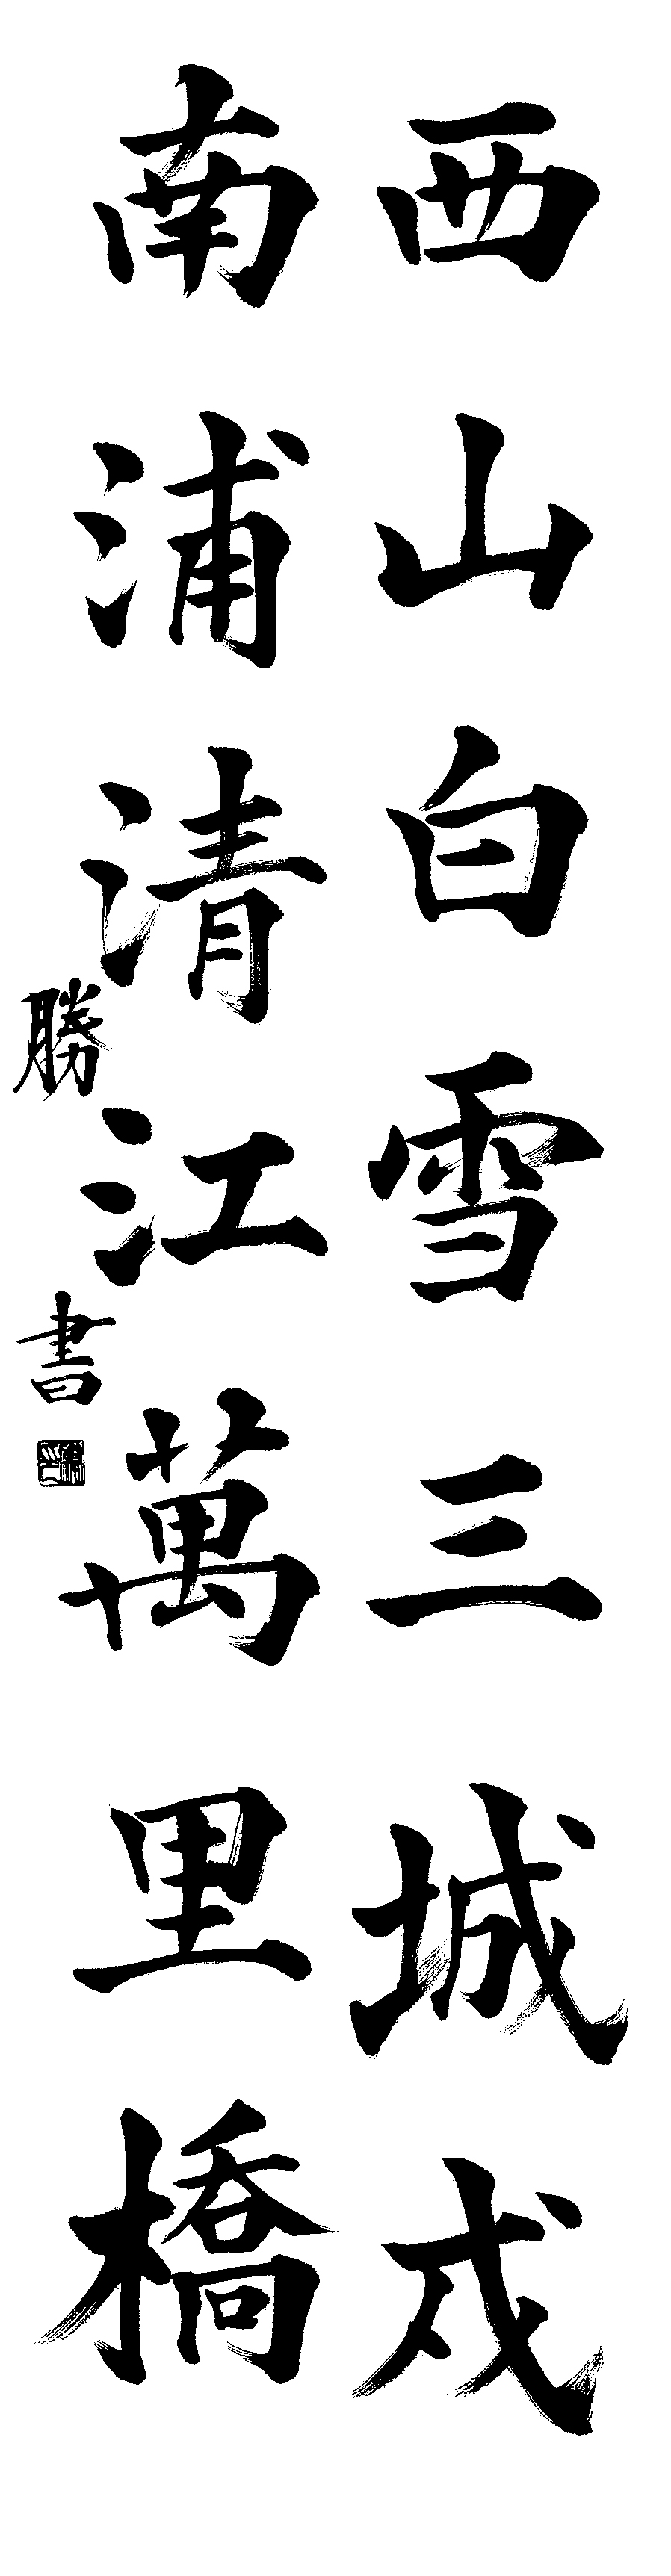 西山白雪三城戍
南浦清江萬里橋
勝書